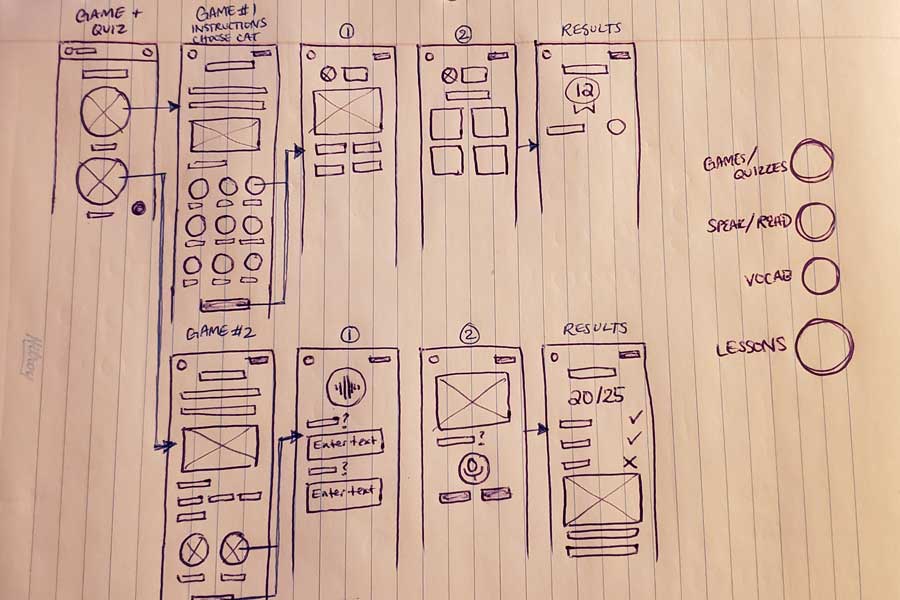 GAME +
QUIZ
GAME #1
INSTRUCTIONS
CHOOSE CAT
1
2
RESULTS
12
GAMES/
QUIZZES
SPEAK/READ
VOCAB
LESSONS
GAME #2
1
2
RESULTS
?
Enter text
?
Enter text
?
20/25
Hilroy